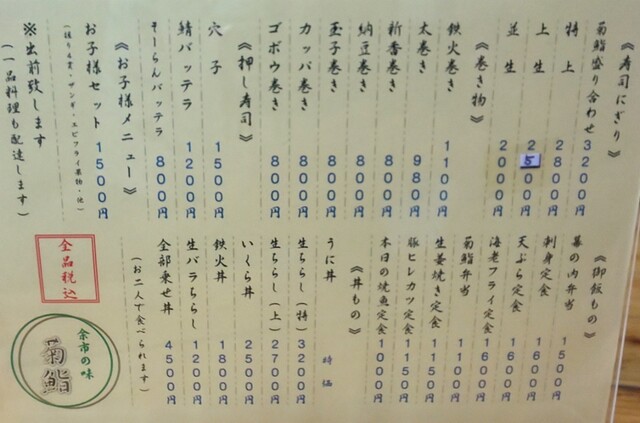 《寿司にぎり》
菊鮨盛り合わせ 3200円
特上 2800円
上生 2500円
並生 2000円
《巻き物》
鉄火巻き 1100円
太巻き 980円
新香巻き 800円
納豆巻き 800円
玉子巻き 800円
カッパ巻き 800円
ゴボウ巻き 800円
《押し寿司》
穴子 1500円
鯖バッテラ 1200円
そーらんバッテラ 800円
《お子様メニュー》
お子様セット 1500円
ザンギ・エビフライ果物・他)
※出前致します
(一品料理も配達します)
《御飯もの》
幕の内弁当 1500円
刺身定食 1600円
天ぷら定食 1600円
海老フライ定食 1600円
菊鮨弁当 1100円
生姜焼き定食 1150円
豚ヒレカツ定食 1150円
本日の焼魚定食 1000円
《丼もの》
うに丼 時価
生ちらし(特) 3200円
生ちらし(上) 2700円
いくら丼 2500円
鉄火丼 1800円
生バラちらし 1200円
全部乗せ丼 4500円
(お二人で食べられます)
全品税込
余市の味
菊鮨